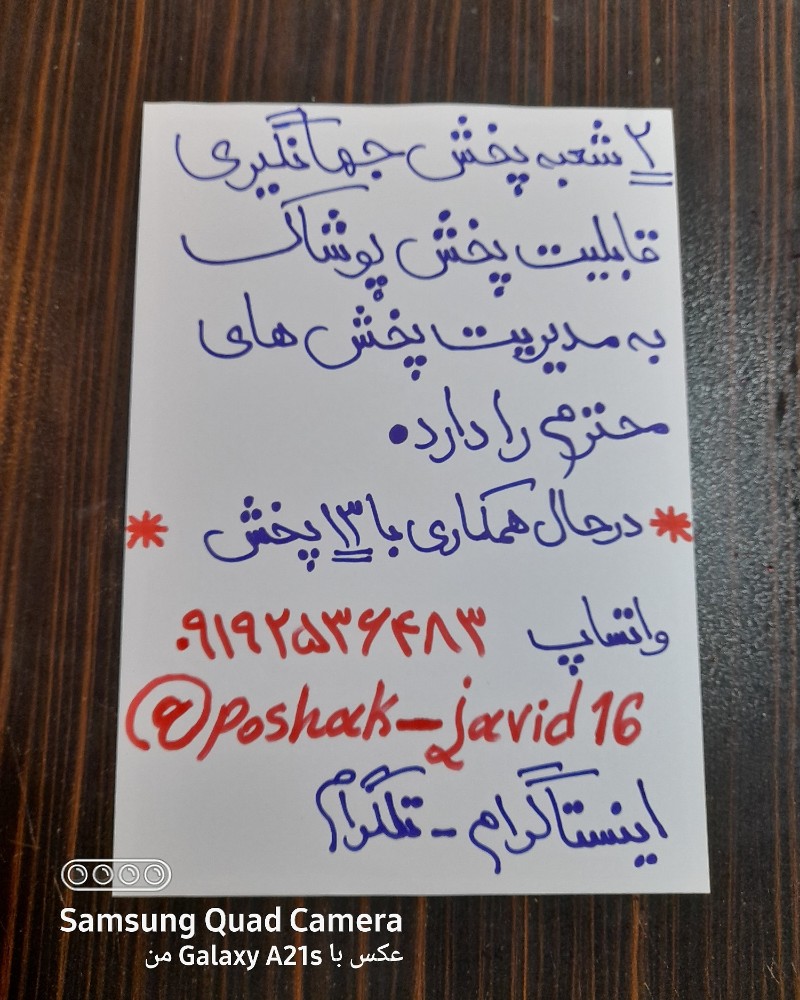 ۲ شعبه پخش جهانگیری
قابلیت پخش پوشاک
به مدیریت پخش های
محترمی را دارد.
* درحال همکاری با ۱۳ پخش *
واتساپ ۰۹۱۹۲۵۳۶۴۸۳
@poshak_javid16
اینستاگرام - تلگرام
Samsung Quad Camera
عکس با Galaxy A21s من